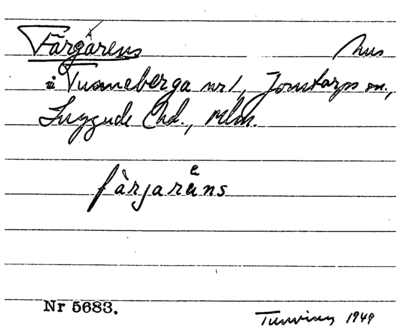 Färgarens hus
i Tunneberga nr 1, Jonstorps sn.,
Luggude hd., Mlm.
färjarens
Nr 5683.
1949